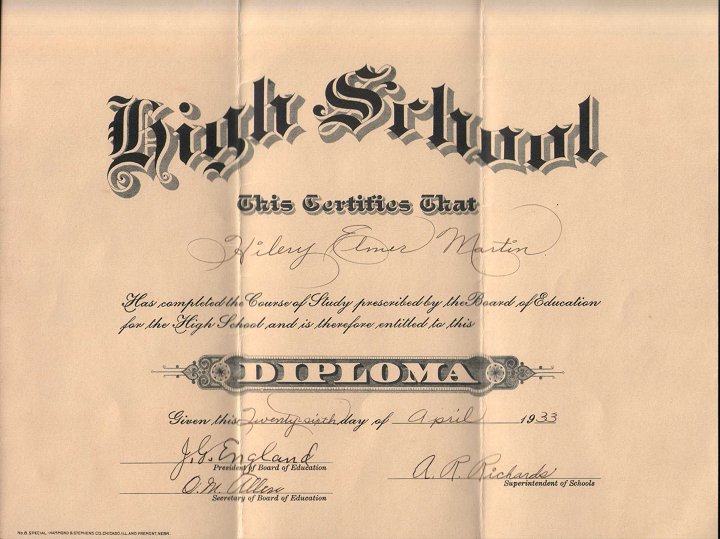 High School
This Certifies That
Hilery Elmer Martin
Has completed the Course of Study prescribed by the Board of Education
for the High School and is therefore entitled to this
DIPLOMA
Given this Twenty-sixth day of April 1933
J. G. England
President of Board of Education
O. M. Allen
Secretary of Board of Education
A. R. Richards
Superintendent of Schools
No. 8. SPECIAL-HAMMOND & STEPHENS CO. CHICAGO, ILL. AND FREMONT, NEBR.